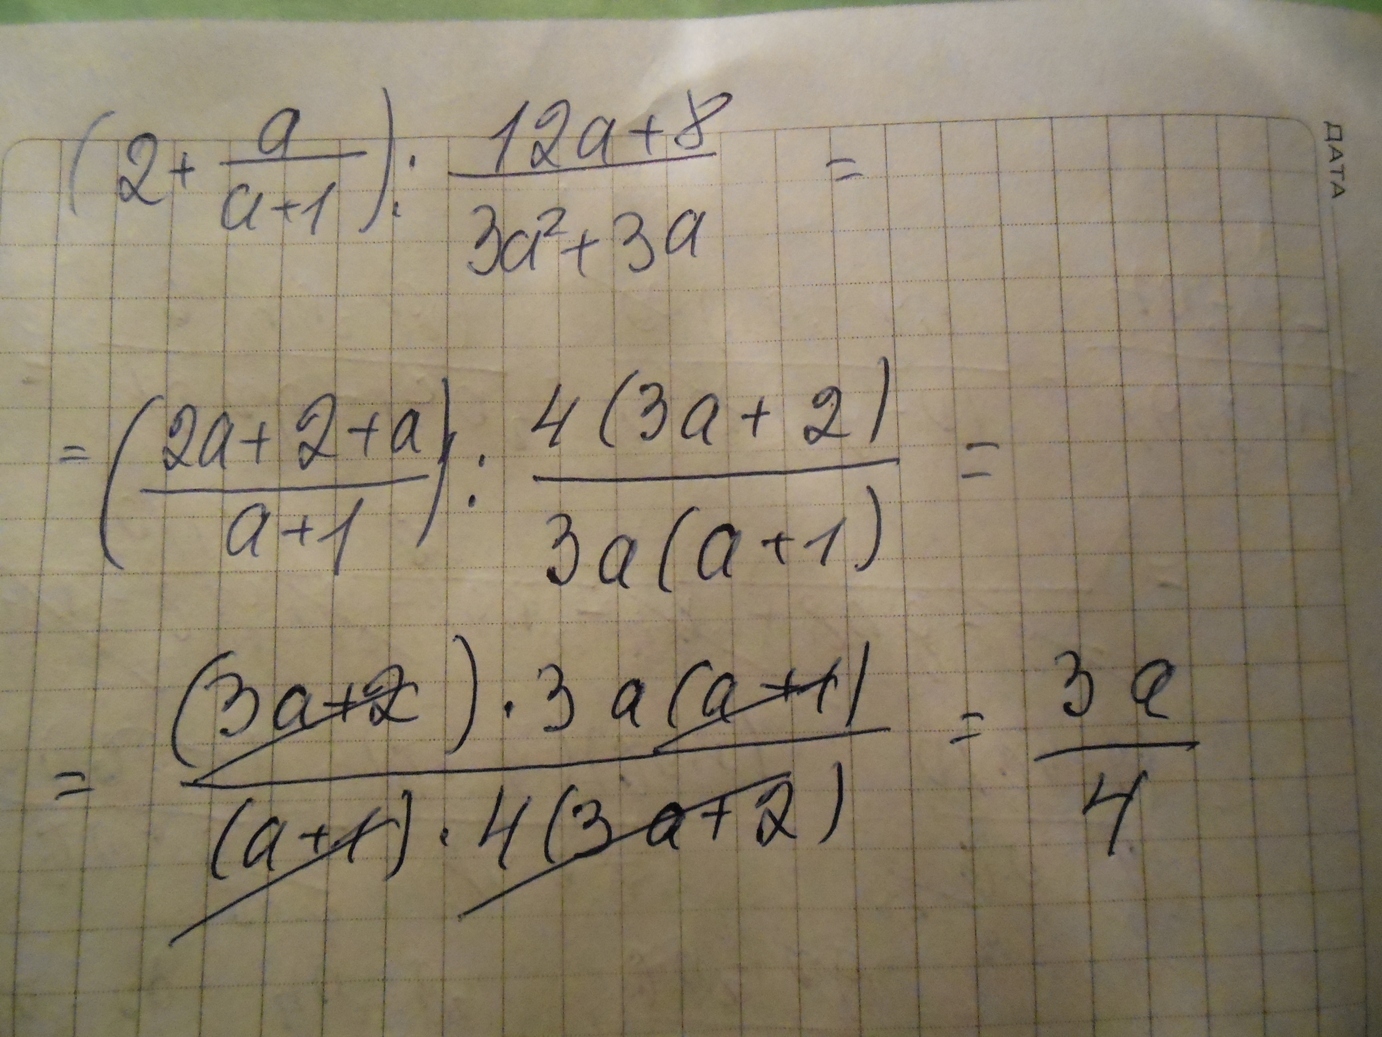 ДАТА
(2 + a/(a+1)) : (12a+8)/(3a²+3a) =
= ((2a+2+a)/(a+1)) : (4(3a+2))/(3a(a+1)) =
= ((3a+2)·3a(a+1))/((a+1)·4(3a+2)) = 3a/4